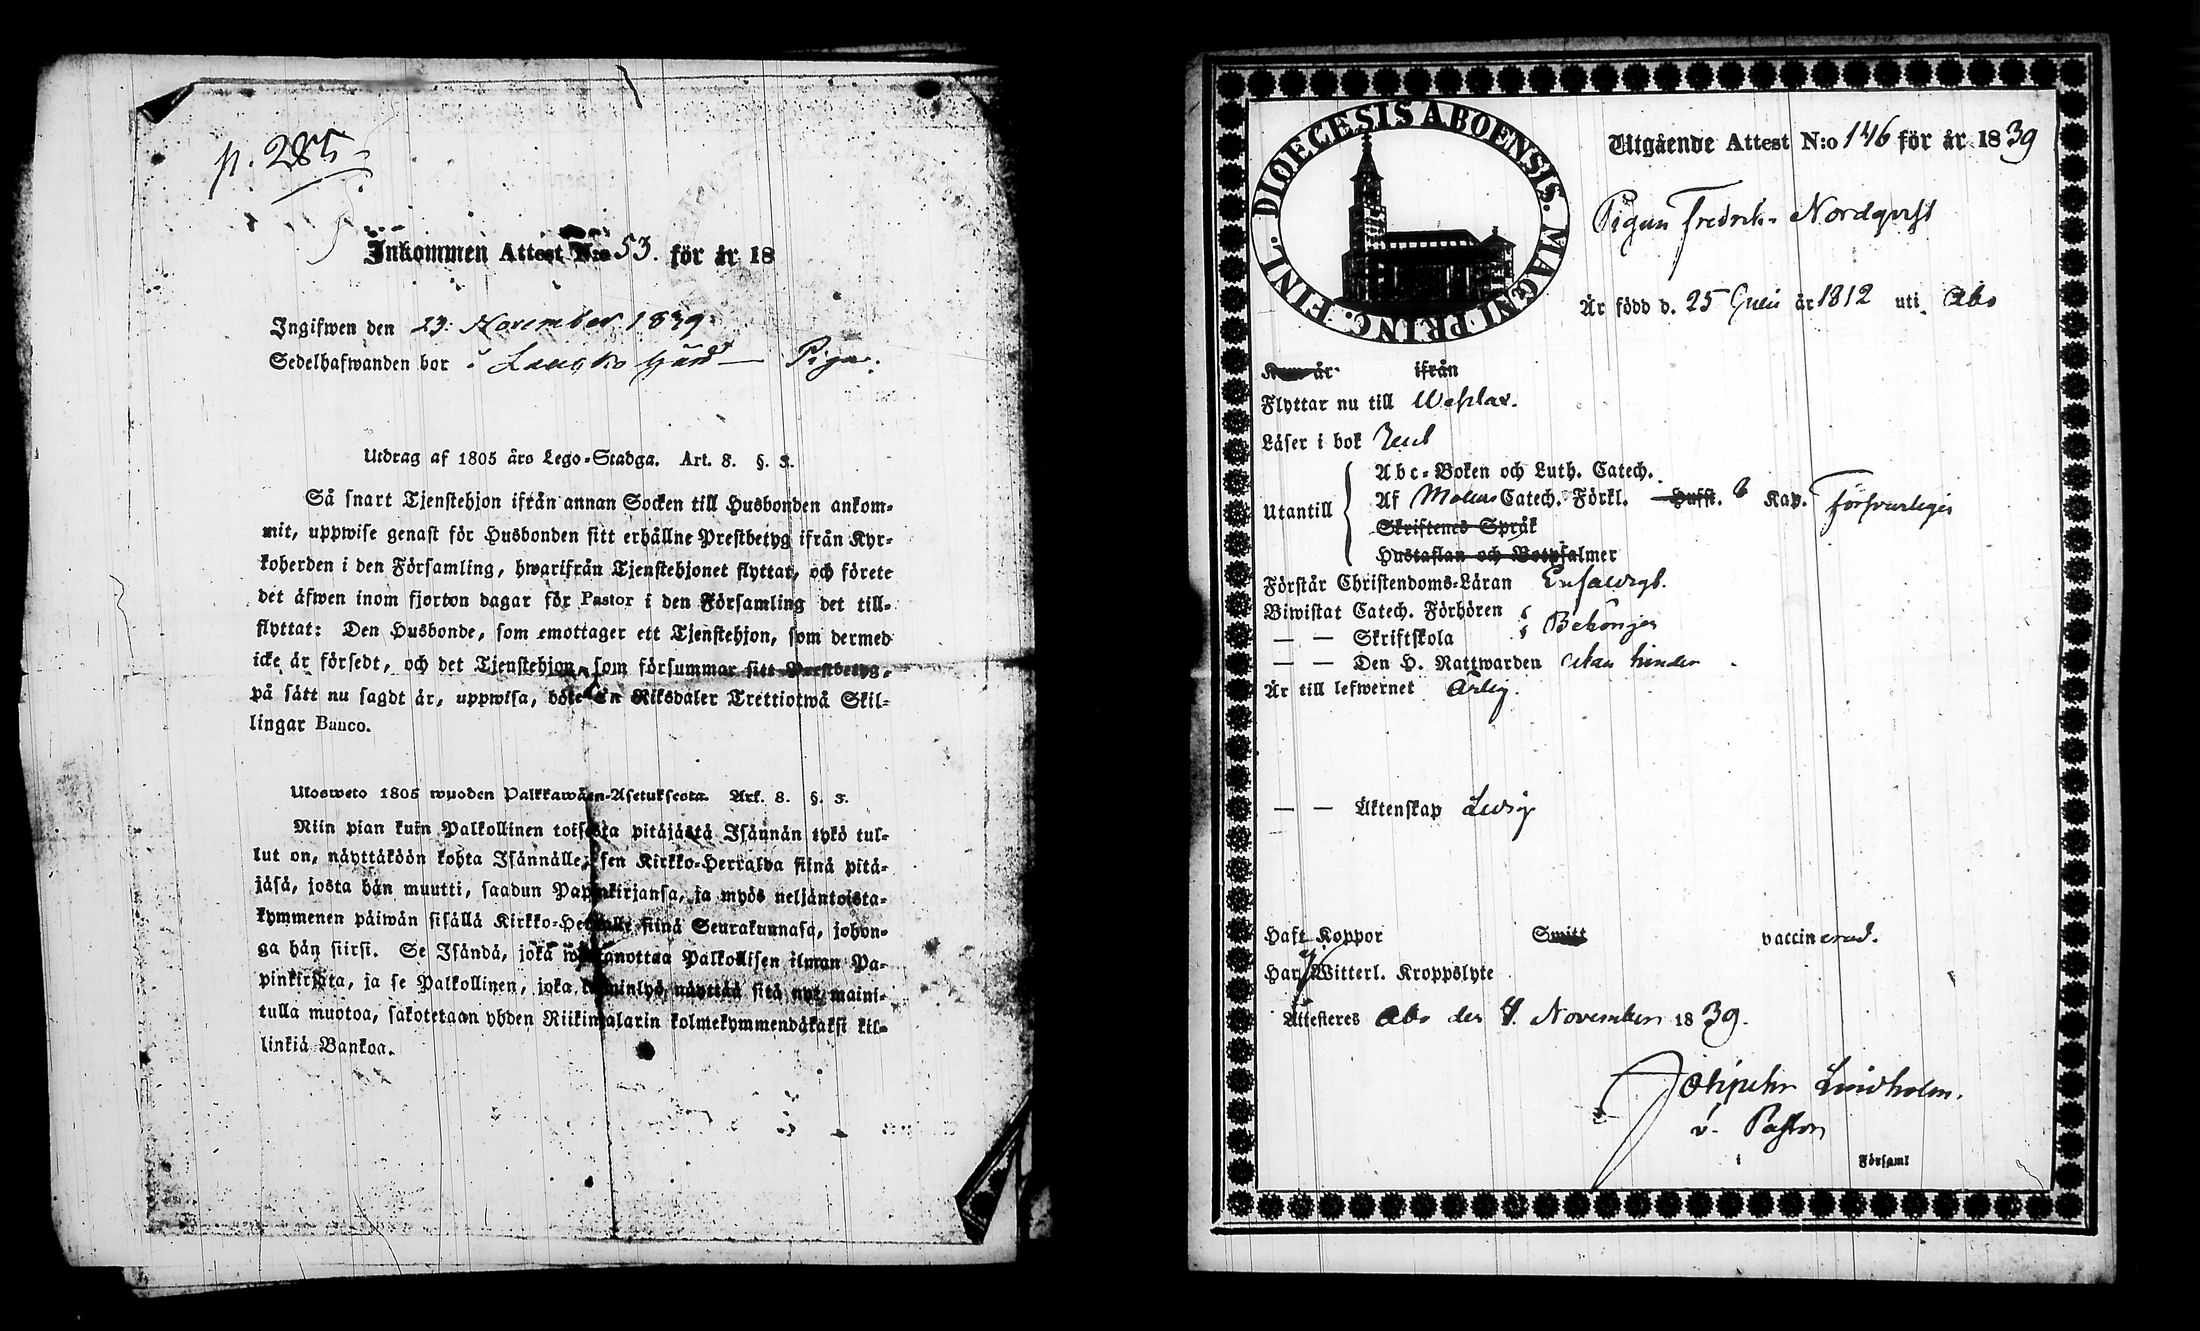 p. 285
Inkommen Attest N:o 53. för år 18
Ingifwen den 23 November 1839
Sedelhafwanden bor i gård Piga.
Utdrag af 1805 års Lego-Stadga. Art. 8. §. 3.
Så snart Tjenstehjon ifrån annan Socken till Husbonden ankom-
mit, uppwise genast för Husbonden sitt erhållne Prestbetyg ifrån Kyr-
koherden i den Församling, hwarifrån Tjenstehjonet flyttat, och förete
det äfwen inom fjorton dagar för Pastor i den Församling det till-
flyttat: Den Husbonde, som emottager ett Tjenstehjon, som dermed
icke är försedt, och det Tjenstehjon, som försummar sitt Prestbetyg,
på sätt nu sagdt är, uppwisa, böte en Riksdaler Trettiotwå Skil-
lingar Banco.
Ulosweto 1805 wuoden Palkkawäen-Asetuksesta. Art. 8. §. 3.
Niin pian kuin Palkollinen toisesta pitäjästä Isännän tykö tul-
lut on, näyttäköön kohta Isännälle, sen Kirkko-Herralda siinä pitä-
jäsä, josta hän muutti, saadun Papinkirjansa, ja myös neljäntoista-
kymmenen päiwän sisällä Kirkko-Herralle siinä Seurakunnasa, johon-
ga hän siirsi. Se Isändä, joka wastanottaa Palkollisen ilman Pa-
pinkirjata, ja se Palkollinen, joka laiminlyö näyttää sitä nyt maini-
tulla muotoa, sakotetaan yhden Riikintalarin kolmekymmendäkaksi kil-
linkiä Bankoa.
DIOECESIS ABOENSIS. MAGNI PRINC. FINL.
Utgående Attest N:o 146 för år 1839
Pigan Fredrika Nordqvist
Är född d. 25 Junii år 1812 uti Åbo
Kom år ifrån
Flyttar nu till
Läser i bok
Utantill
Abc-Boken och Luth. Catech.
Af Catech. Förkl. Husst. 6 Kap. Försvarligen
Skriftenes Språk
Hustaflan och Botpsalmer
Förstår Christendoms-Läran Enfaldigt.
Biwistat Catech. Förhören
— — Skriftskola Behörigen
— — Den H. Nattwarden utan hinder
Är till lefwernet Ärlig.
— — Äktenskap Ledig
Haft Koppor Smitt vaccinerad.
Har ej Witterl. Kroppslyte
Attesteres Åbo den 4. November 1839.
Lindholm.
v. Pastor
i Församl